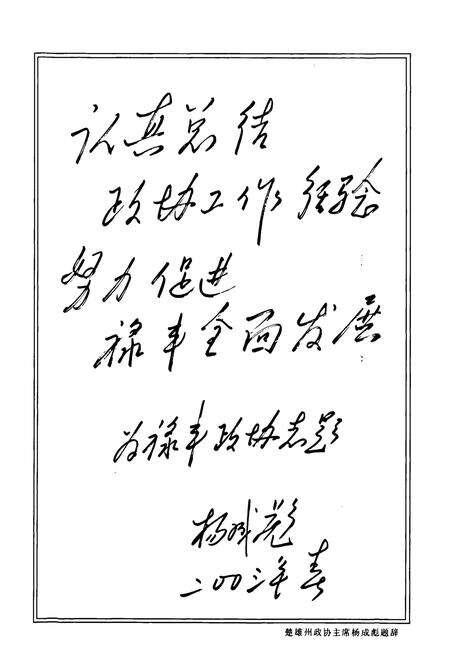 认真总结
政协工作经验
努力促进
禄丰全面发展
为禄丰政协志题
杨成彪
二00二年春
楚雄州政协主席杨成彪题辞